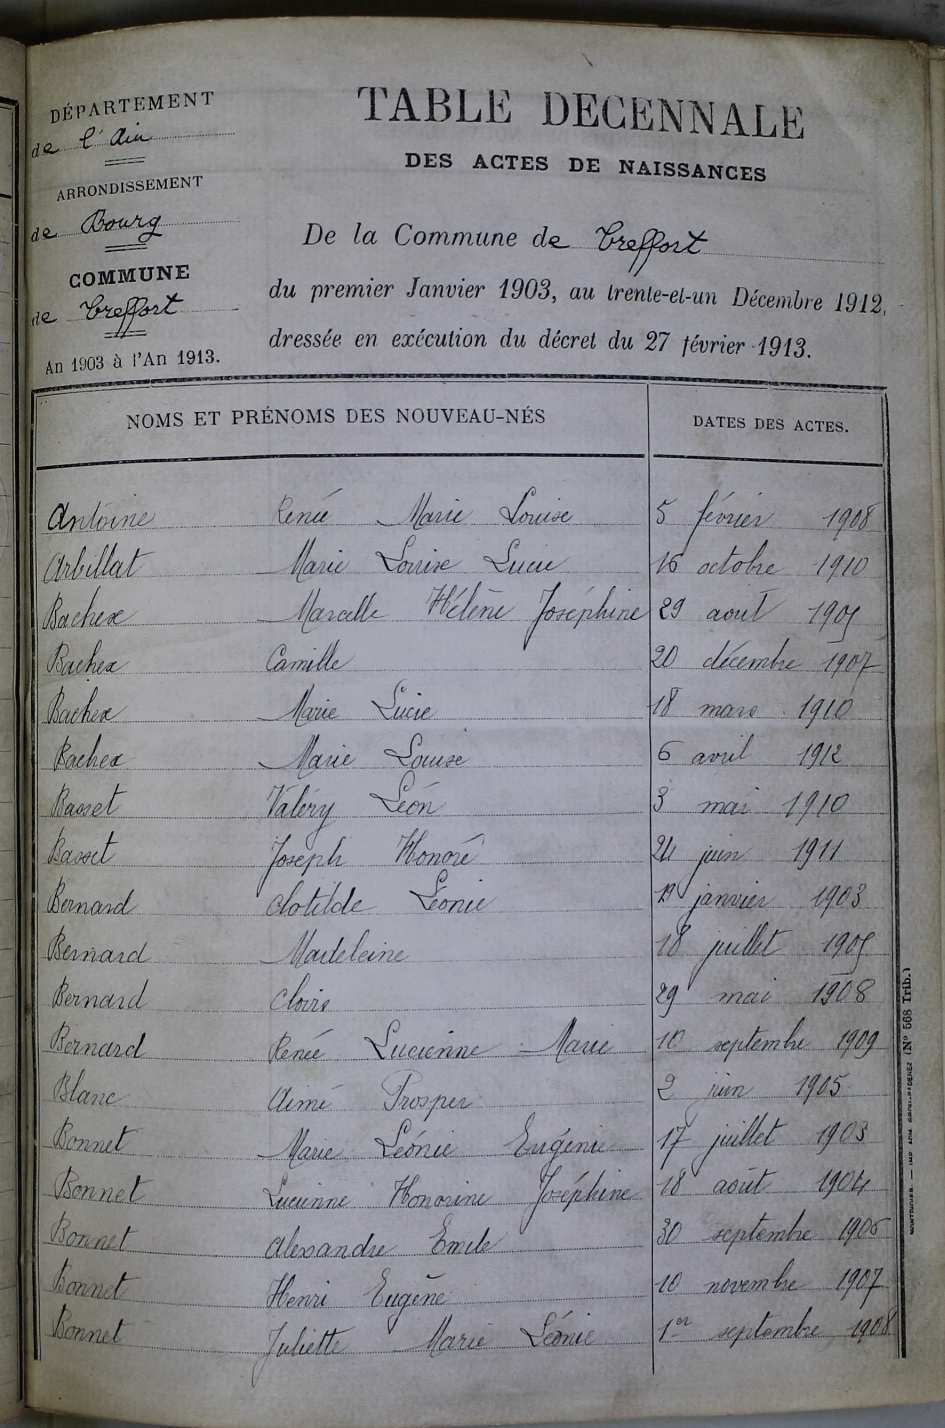 DÉPARTEMENT
de l'Ain
ARRONDISSEMENT
de Bourg
COMMUNE
de Treffort
An 1903 à l'An 1913.
TABLE DECENNALE
DES ACTES DE NAISSANCES
De la Commune de Treffort
du premier Janvier 1903, au trente-et-un Décembre 1912,
dressée en exécution du décret du 27 février 1913.
NOMS ET PRÉNOMS DES NOUVEAU-NÉS DATES DES ACTES.
Antoine Renée Marie Louise 5 février 1908
Arbillat Marie Louise Lucie 16 octobre 1910
Bachex Marcelle Hélène Joséphine 29 août 1905
Bachex Camille 20 décembre 1907
Bachex Marie Lucie 18 mars 1910
Bachex Marie Louise 6 avril 1912
Basset Valéry Léon 3 mai 1910
Basset Joseph Honoré 24 juin 1911
Bernard Clotilde Léonie 19 janvier 1903
Bernard Madeleine 18 juillet 1905
Bernard Clovis 29 mai 1908
Bernard Renée Lucienne Marie 10 septembre 1909
Blanc Aimé Prosper 2 juin 1905
Bonnet Marie Léonie Eugénie 17 juillet 1903
Bonnet Lucienne Honorine Joséphine 18 août 1904
Bonnet Alexandre Emile 30 septembre 1906
Bonnet Henri Eugène 10 novembre 1907
Bonnet Juliette Marie Léonie 1er septembre 1908
(No 568 Trib.)